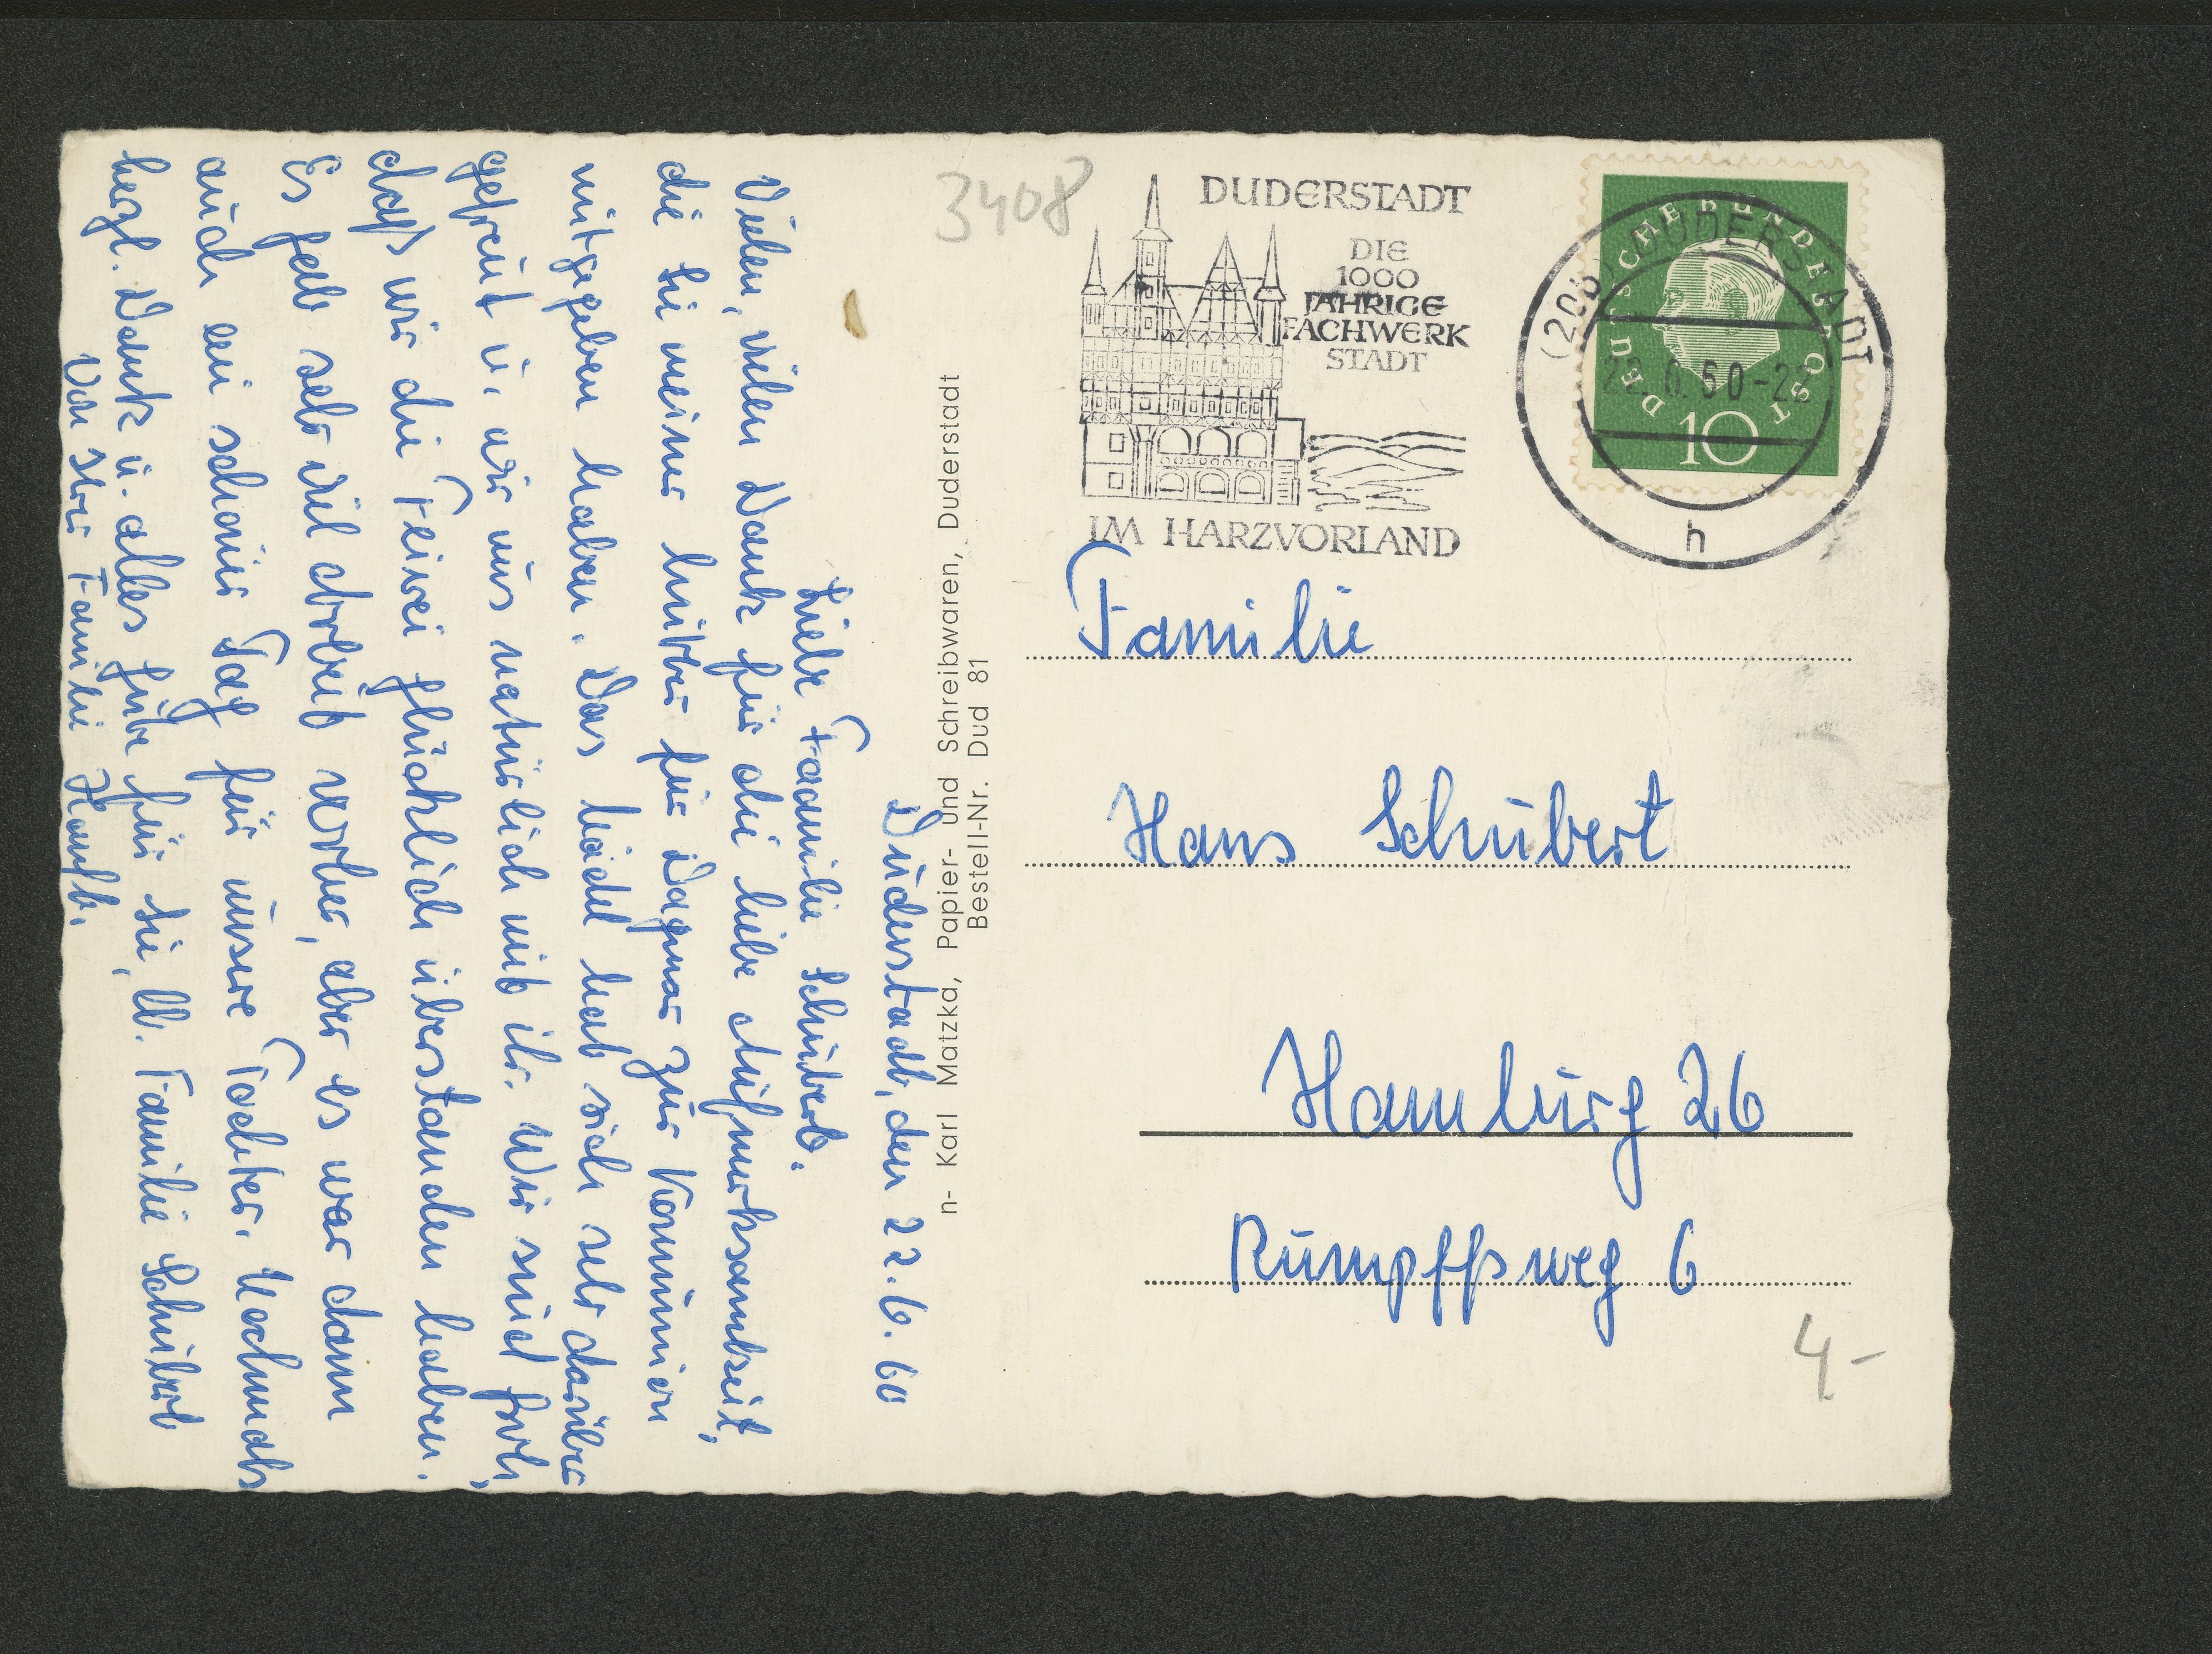 Duderstadt, den 22.6.60
Liebe Familie Schubert.
Vielen, vielen Dank für die liebe Aufmerksamkeit,
die Sie meiner Mutter für Dagmar zur Kommunion
mitgegeben haben. Das Mädel hat sich sehr darüber
gefreut u. wir uns natürlich mit ihr. Wir sind froh,
daß wir die Feier glücklich überstanden haben.
Es gab sehr viel Arbeit vorher, aber es war dann
auch ein schöner Tag für unsere Tochter. Nochmals
herzl. Dank u. alles Gute für Sie, lb. Familie Schubert
Von Ihrer Familie
n- Karl Matzka, Papier- und Schreibwaren, Duderstadt
Bestell-Nr. Dud 81
3408
DUDERSTADT
DIE
1000
JÄHRIGE
FACHWERK
STADT
IM HARZVORLAND
DEUTSCHE BUNDESPOST
10
(20b) DUDERSTADT
6.60-2
h
Familie
Hans Schubert
Hamburg 26
Rumpffsweg 6
4-